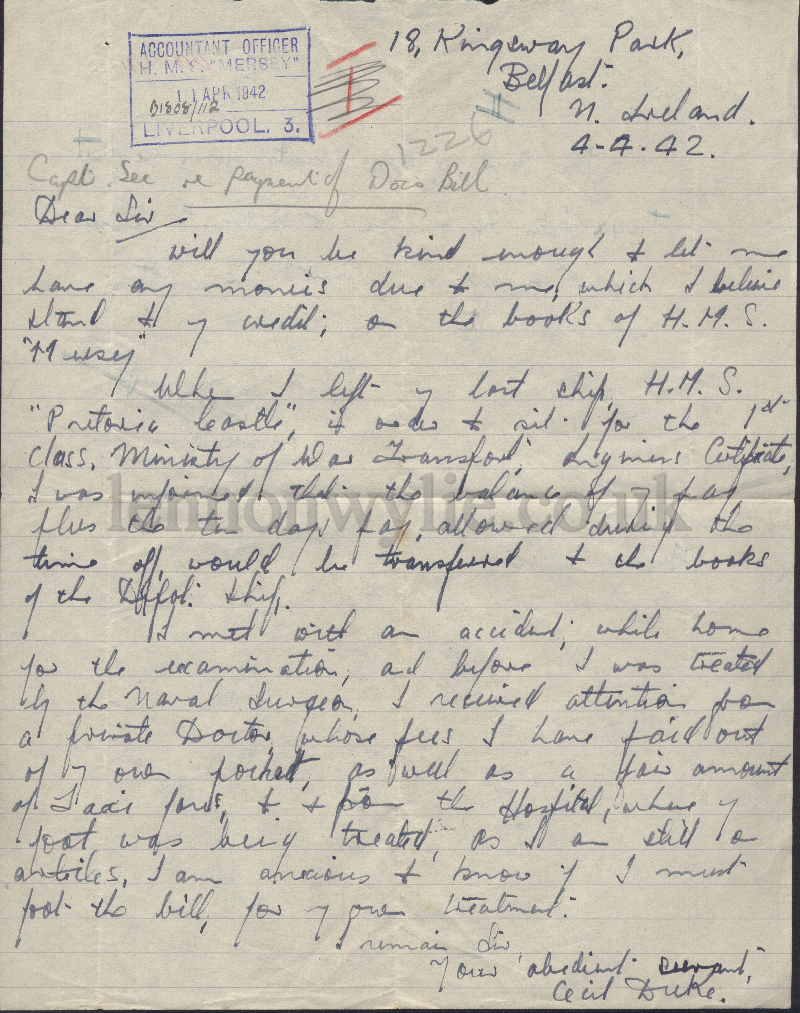 18, Kingsway Park,
Belfast.
N. Ireland.
4-4-42.
ACCOUNTANT OFFICER
H. M. S. "MERSEY"
11 APR 1942
B1808/112
LIVERPOOL. 3.
1226
Capt. Sec re payment of Docs Bill
Dear Sir
Will you be kind enough to let me
have any monies due to me, which I believe
stand to my credit; on the books of H.M.S.
"Mersey"
When I left my last ship, H.M.S.
"Pretoria Castle", in order to sit for the 1st
Class, Ministry of War Transport, Engineers Certificate,
I was informed that the balance of my pay
plus the ten days pay, allowed during the
time off, would be transferred to the books
of the Depot ship.
I met with an accident, while home
for the examination, and before I was treated
by the Naval Surgeon, I received attention from
a private Doctor, whose fees I have paid out
of my own pocket, as well as a fair amount
of Taxi fares, to & from the Hospital, where my
foot was being treated, as I am still on
articles, I am anxious to know if I must
foot the bill, for my own treatment.
I remain Sir,
Your obedient servant,
Cecil Duke.
lennonwylie.co.uk